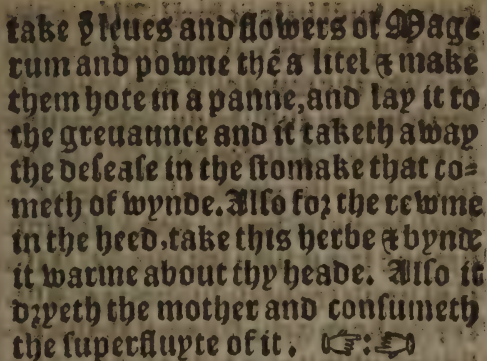 take yͤ leues and flowers of Mage
rum and powne thẽ a litel ⁊ make
them hote in a panne, and lay it to
the greuaunce and it taketh away
the deſeaſe in the ſtomake that co=
meth of wynde. Alſo foꝛ the rewme
in the heed, take this herbe ⁊ bynde
it warme about thy heade. Alſo it
dꝛyeth the mother and conſumeth
the ſuperfluyte of it. ☞:☜